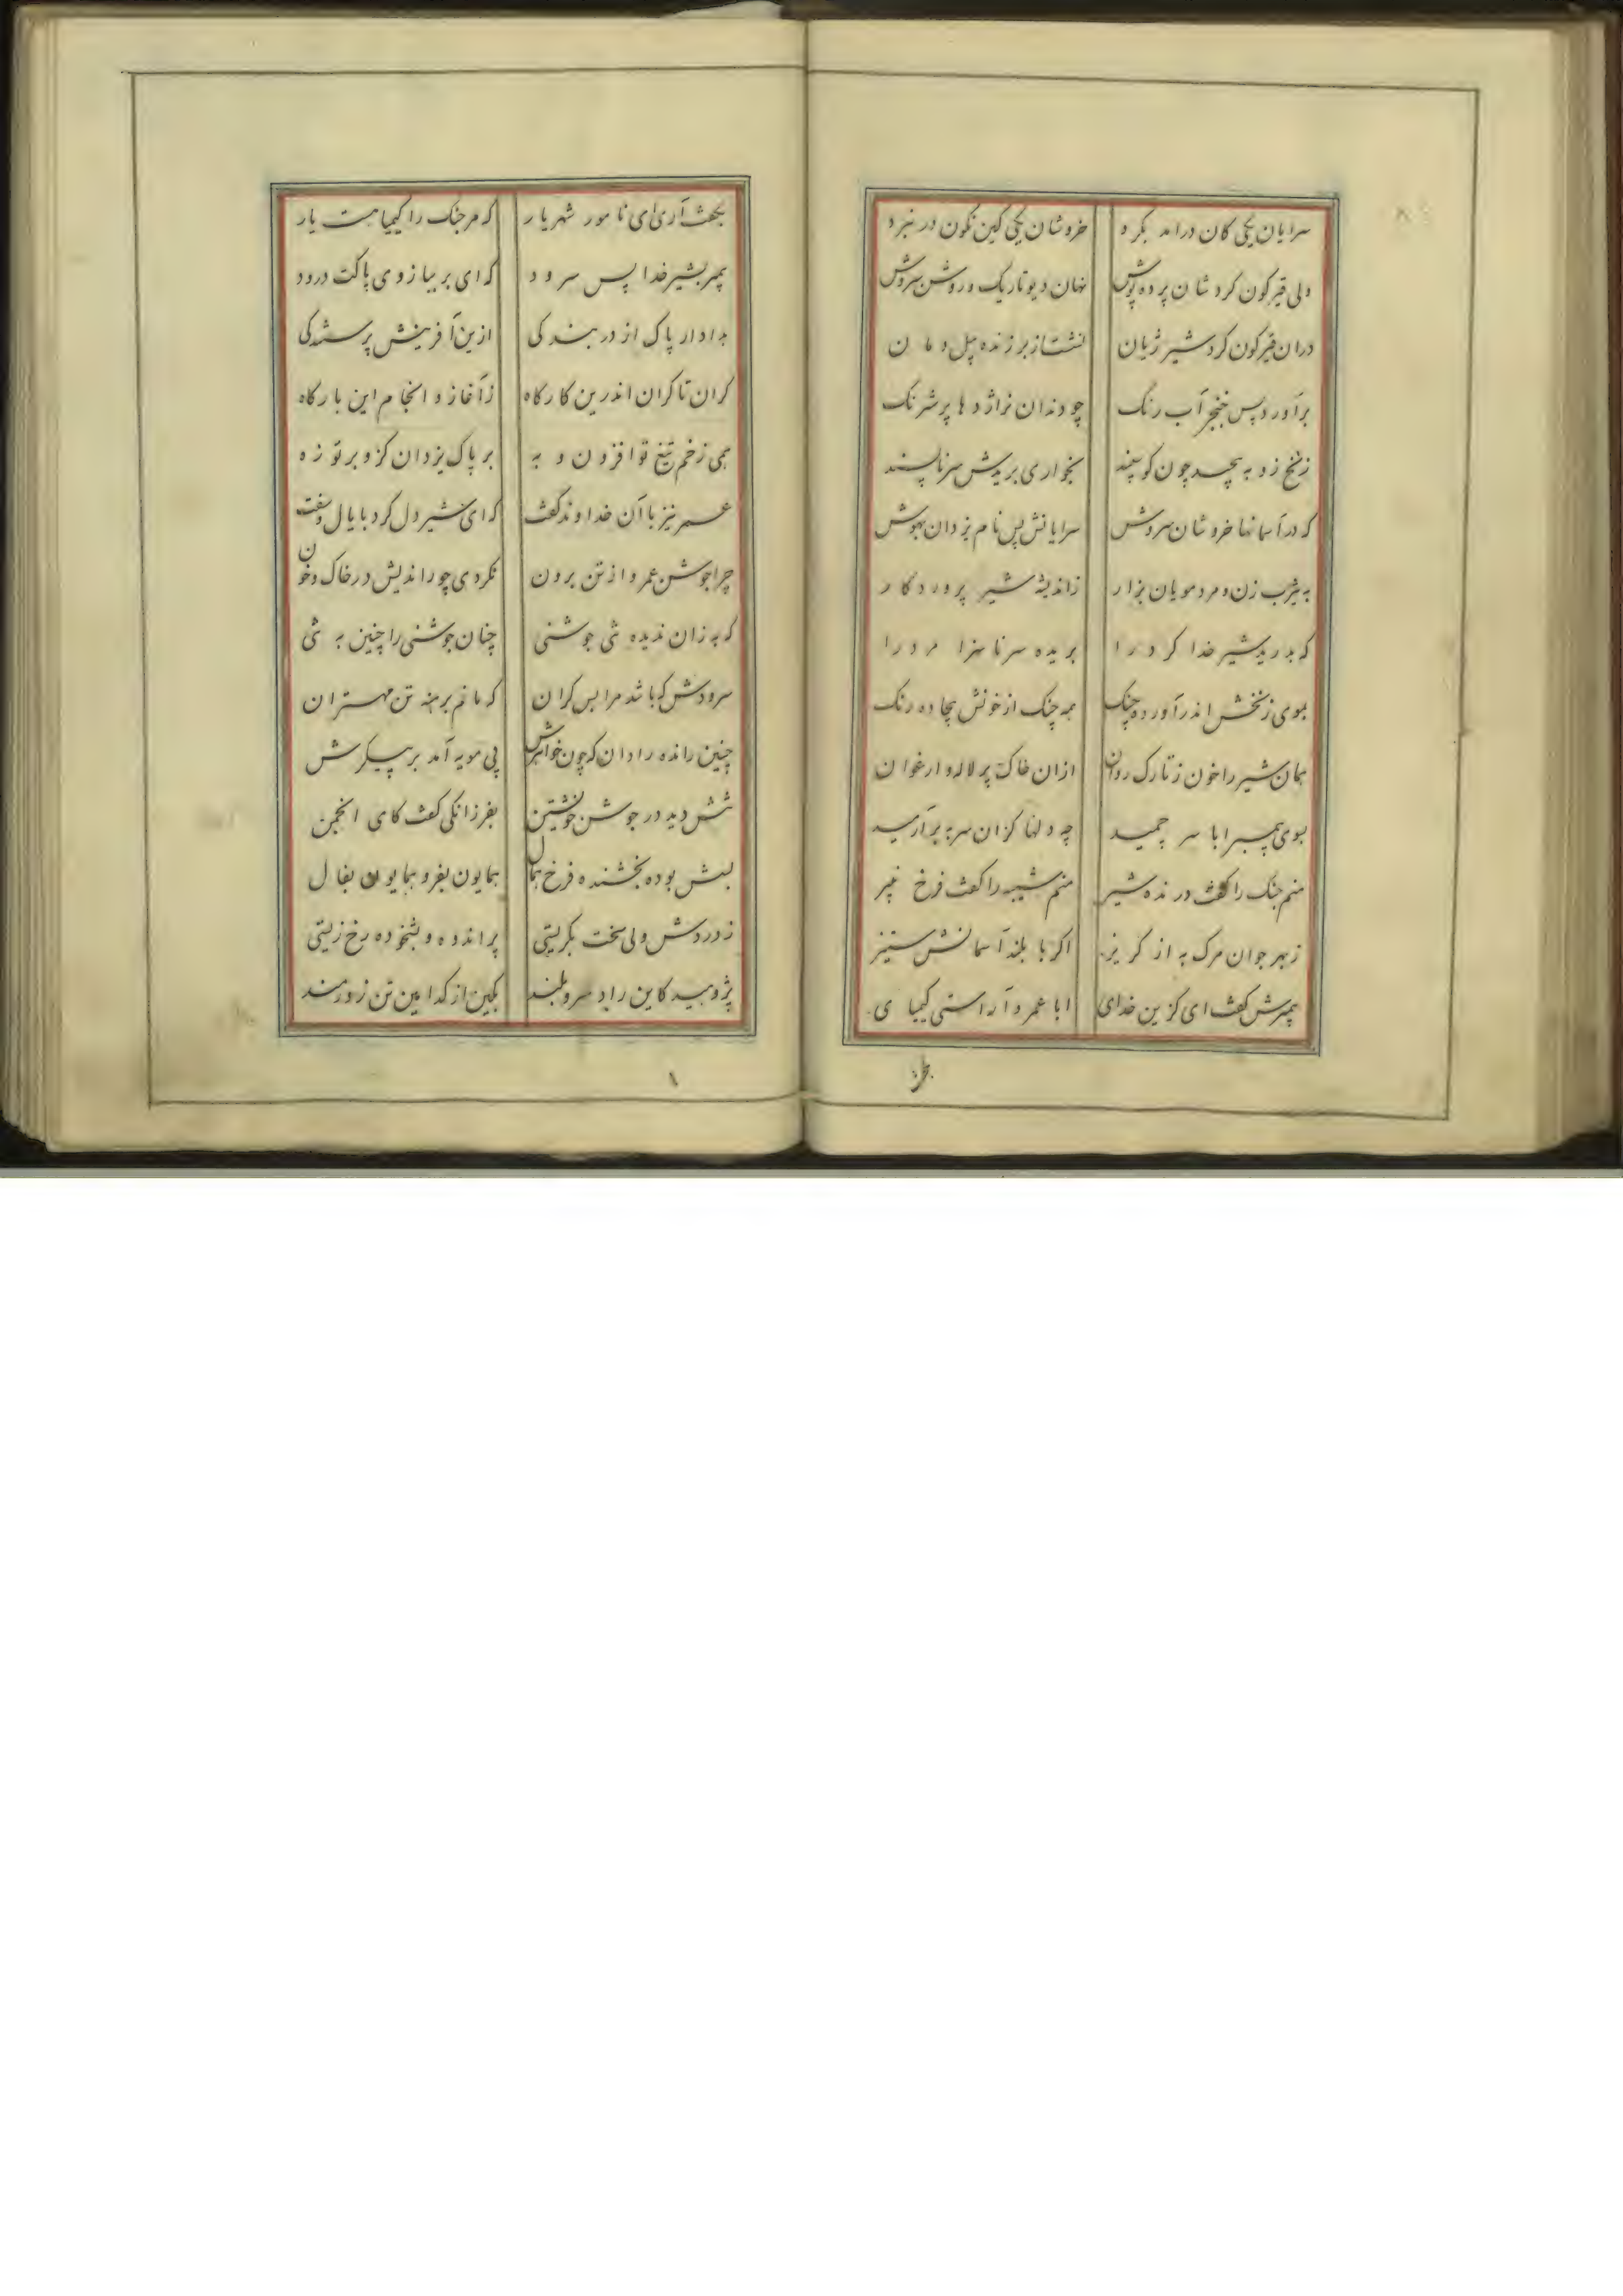 سرایان یکی کان درامد بکرد خروشان یکی کین نکون در نبرد
ولی قیرکون کرد شان پرده پوش نهان دیو تاریک و روشن سروش
دران قیرکون کرد شیر ژیان نشست از بر زنده پیل دمان
برآورد پس خنجر آب رنک چو دندان نر اژدها پر شرنک
زنخ زد به پیچید چون کوسپند بخواری بریدش سر ناپسند
که در آسمانها خروشان سروش سرایانش پس نام یزدان بهوش
به یثرب زن و مرد مویان بزار ز اندیشه شیر پروردکار
که بدرید شیر خدا کرد را بریده سر ناسزا مرد را
بموی زنخش اندر آورده چنک همه چنک از خونش بیجاده رنک
همان شیر را خون ز تارک روان ازان خاک پر لاله و ارغوان
بسوی پیمبر ابا سر چمید چه دلها کزان سر به بر آرمید
منم جنک را کفت درنده شیر منم شیبه را کفت فرخ نبیر
ز بهر جوان مرک به از کریز اکر با بلند آسمانش ستیز
پیمبرش کفت ای کزین خدای ابا عمرو آراستی کیمیای
بکفت آری ای نامور شهریار که مر جنک را کیمیا هست یار
پیمبر بشیر خدا پس سرود که ای بر ببازوی پاکت درود
بدادار پاک از در بندکی ازین آفرینش پرستندکی
کران تا کران اندرین کارکاه ز آغاز و انجام این بارکاه
همی زخم تیغ تو افزون و به بر پاک یزدان کزو بر تو زه
عمر نیز با آن خداوند کفت که ای شیر دل کرد با یال و سفت
چرا جوشن عمرو از تن برون نکردی چو راندیش در خاک و خون
که به زان ندیده تنی جوشنی چنان جوشنی را چنین به تنی
سرودش که باشد مرا بس کران که مانم برهنه تن مهتران
چنین رانده رادان که چون خواهرش پی مویه آمد بر پیکرش
تنش دید در جوشن خویشتن بفرزانکی کفت کای انجمن
بسش بوده بخشنده فرخ همال همایون بفر و همایون بفال
ز دردش ولی سخت بکریستی پر اندوه و بشخوده رخ زیستی
پژوهید کاین راد سرو بلند بکین از کدامین تن زورمند